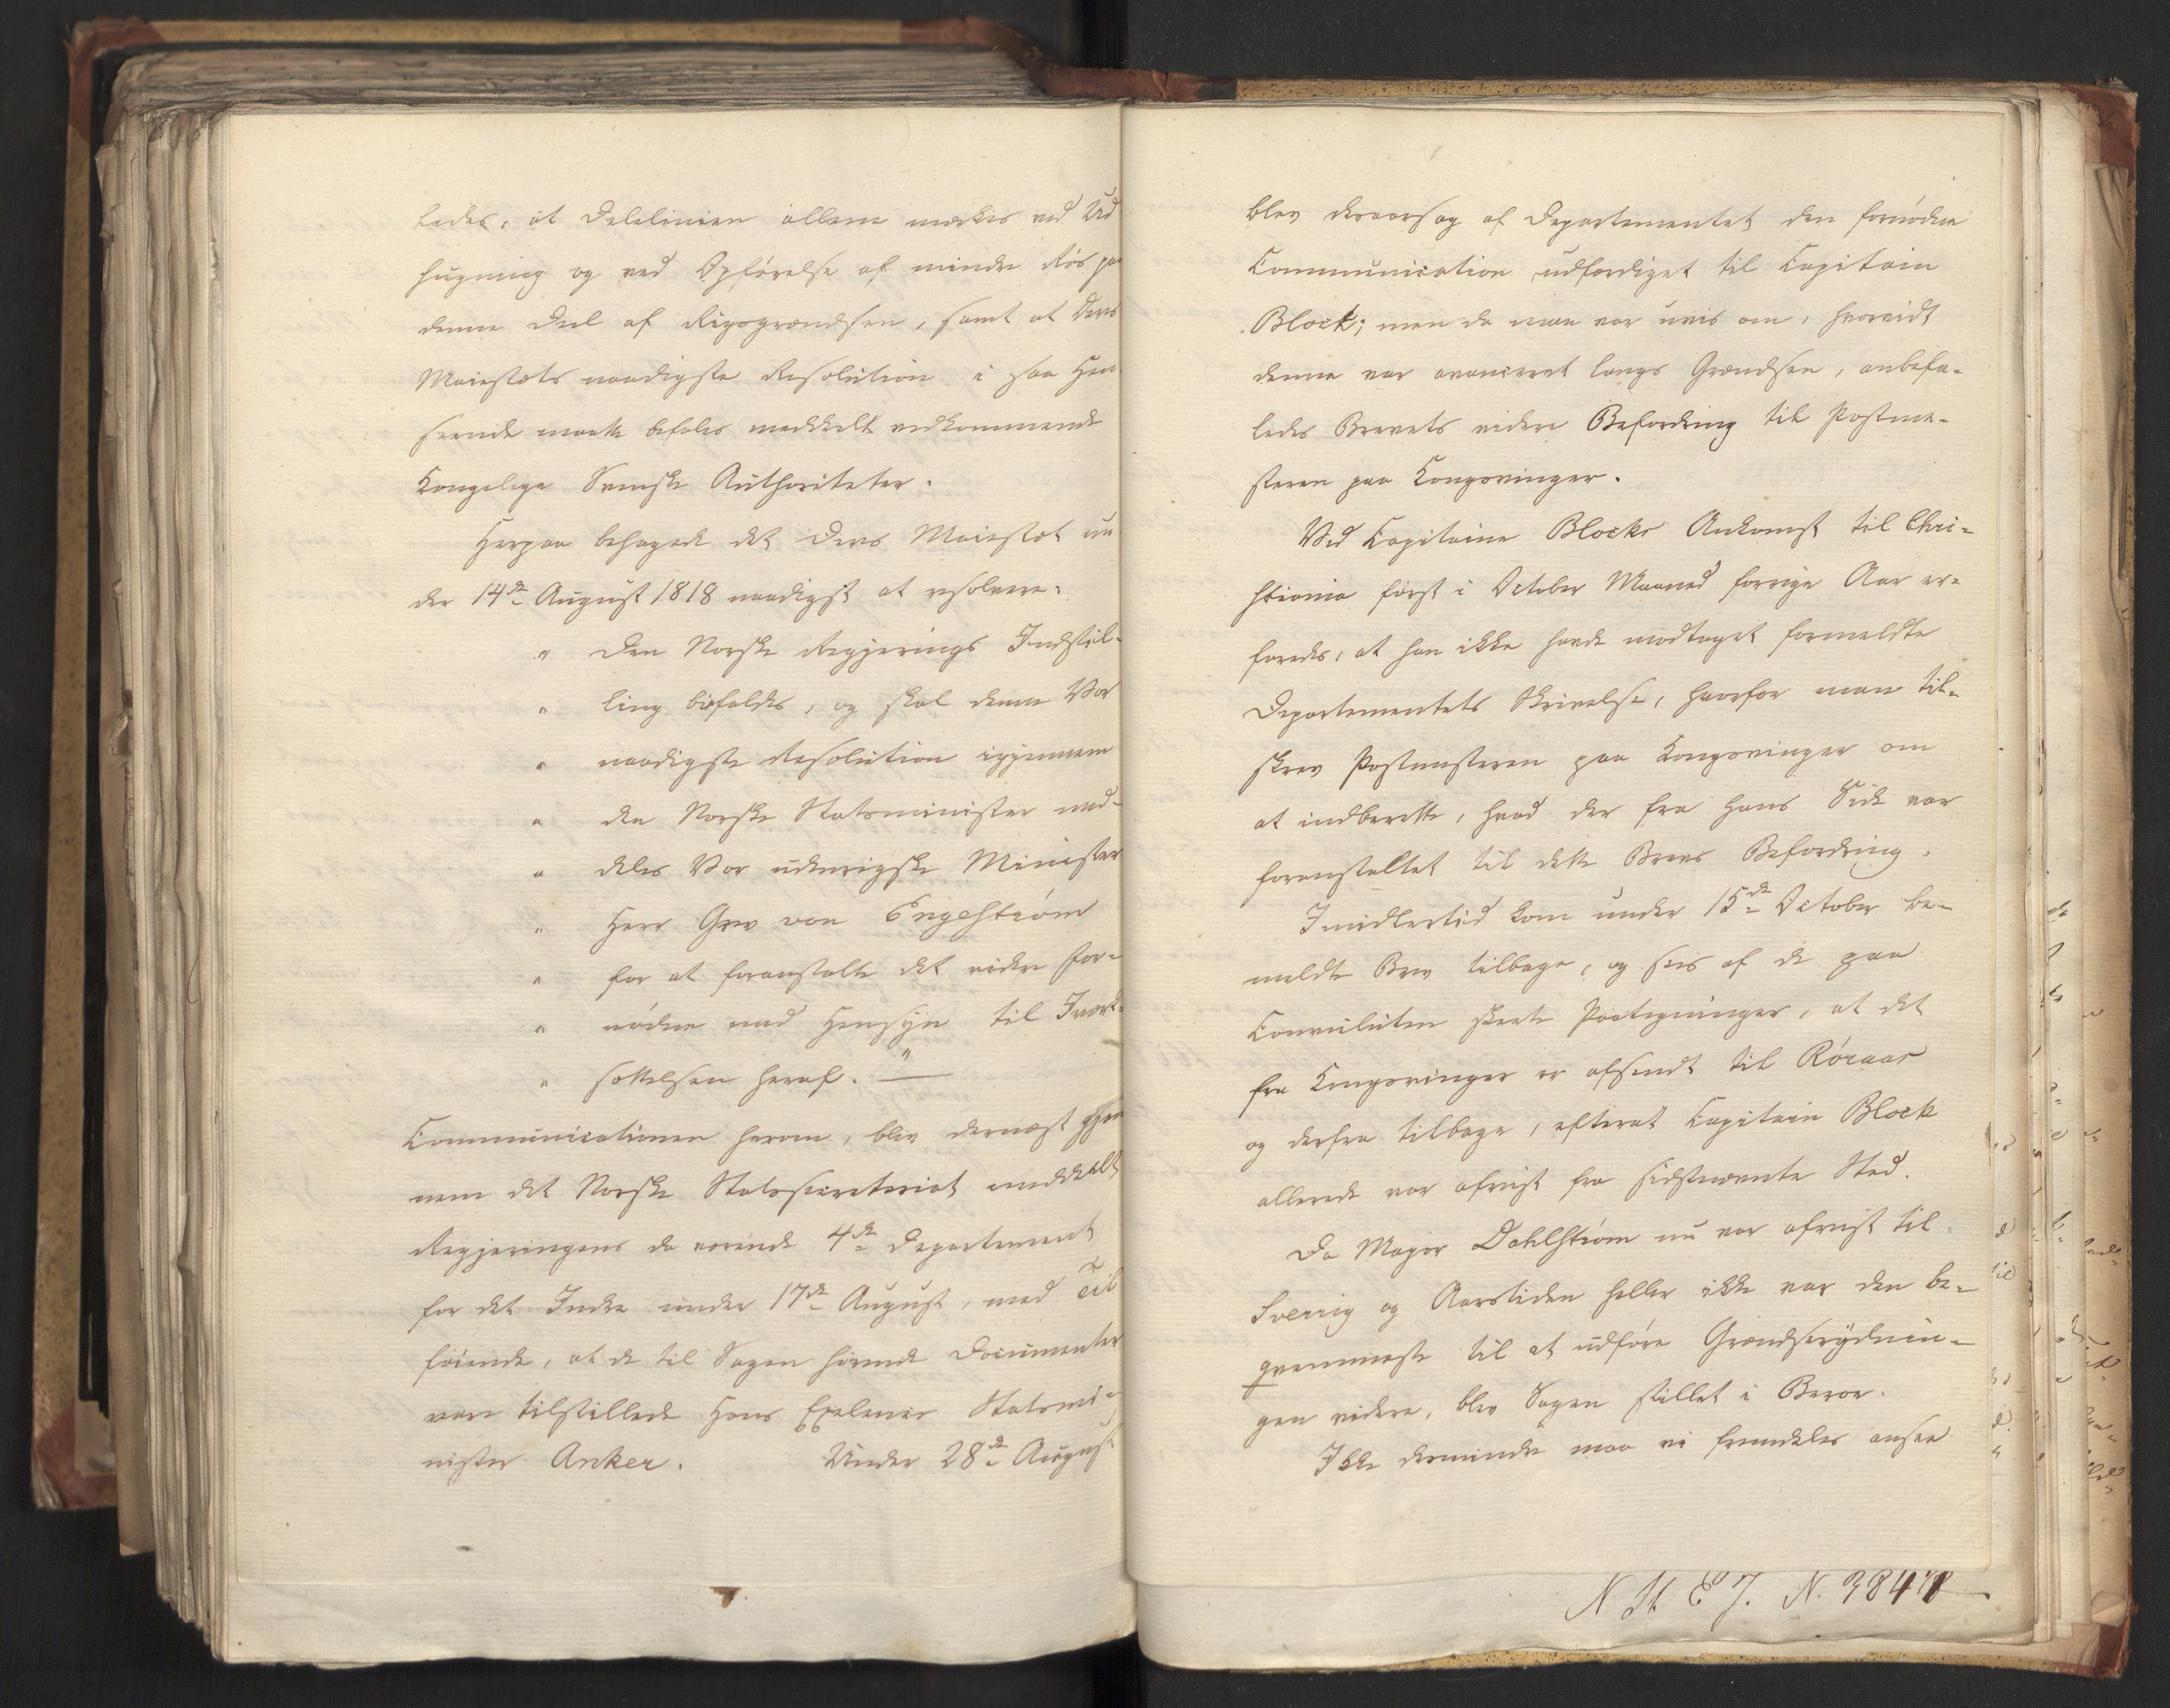 ledes, at Delelinien allene mærkes ved Ud
hugning og ved Opførelse af mindre Rös paa
denne Deel af Rigsgrændsen, samt at Deres
Majestæts naadigste Resolution i saa Hen
seende maatte befales meddeelt vedkommende
Kongelige Svenske Authoriteter.
Herpaa behagede det Deres Majestæt un
der 14de August 1818 naadigst at resolvere:
" Den Norske Regjerings Indstil-
" ling bifaldes, og skal denne Vor
" naadigste Resolution igjennem
" den Norske Statsminister med-
" deles Vor udenrigske Minister
" Herr Grev von Engeström
" for at foranstalte det videre for-
" nødne med Hensyn til Iværk-
" sættelsen heraf. "
Communicationen herom, blev dernæst gjen
nem det Norske Statssecretariat meddeelt
Regjeringens da værende 4de Departement
for det Indre under 17de August, med Til
føiende, at de til Sagen hørende Documenter
vare tilstillede Hans Excellence Statsmi-
nister Anker. Under 28de August
blev desaarsag af Departementet den fornødne
Communication udfærdiget til Capitain
Block; men da man var uvis om, hvorvidt
denne var avanceret langs Grændsen, anbefa-
ledes Brevets videre Befordring til Postme-
steren paa Kongsvinger.
Ved Capitaine Blocks Ankomst til Chri-
stiania først i October Maaned forrige Aar er-
faredes, at han ikke havde modtaget formeldte
Departementets Skrivelse, hvorfor man til-
skrev Postmesteren paa Kongsvinger om
at indberette, hvad der fra hans Side var
foranstaltet til dette Brevs Befordring.
Imidlertid kom under 15de October be-
meldte Brev tilbage, og sees af de paa
Convoluten skeete Paategninger, at det
fra Kongsvinger er afsendt til Röraas
og derfra tilbage, efterat Capitain Block
allerede var afreist fra sidstnævnte Sted.
Da Major Dahlström nu var afreist til
Sverrig og Aarstiden heller ikke var den be-
qvemmeste til at udføre Grændserydnin-
gen videre, blev Sagen stillet i Beroe.
Ikke desmindre maa vi fremdeles ansee
N St E J. N.